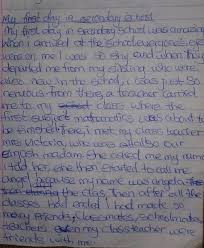 My first day in secondary school
My first day in secondary school was amazing
when I arrived at the school everyone's eyes
were on me I was so shy and when they
departed me from my sibling who were
also new in the school, I was just so
nervous from there, a teacher carried
me to my class where the
first subject mathematics was about to
be finished there, i met my class teacher
mrs Victoria, who was also our
english madam she asked me my name
I told her she then started to call me
because my name was
the class, then after all the
classes had ended I had made so
many friends, classmates, schoolmates
teachers even my class teacher were
friends with me